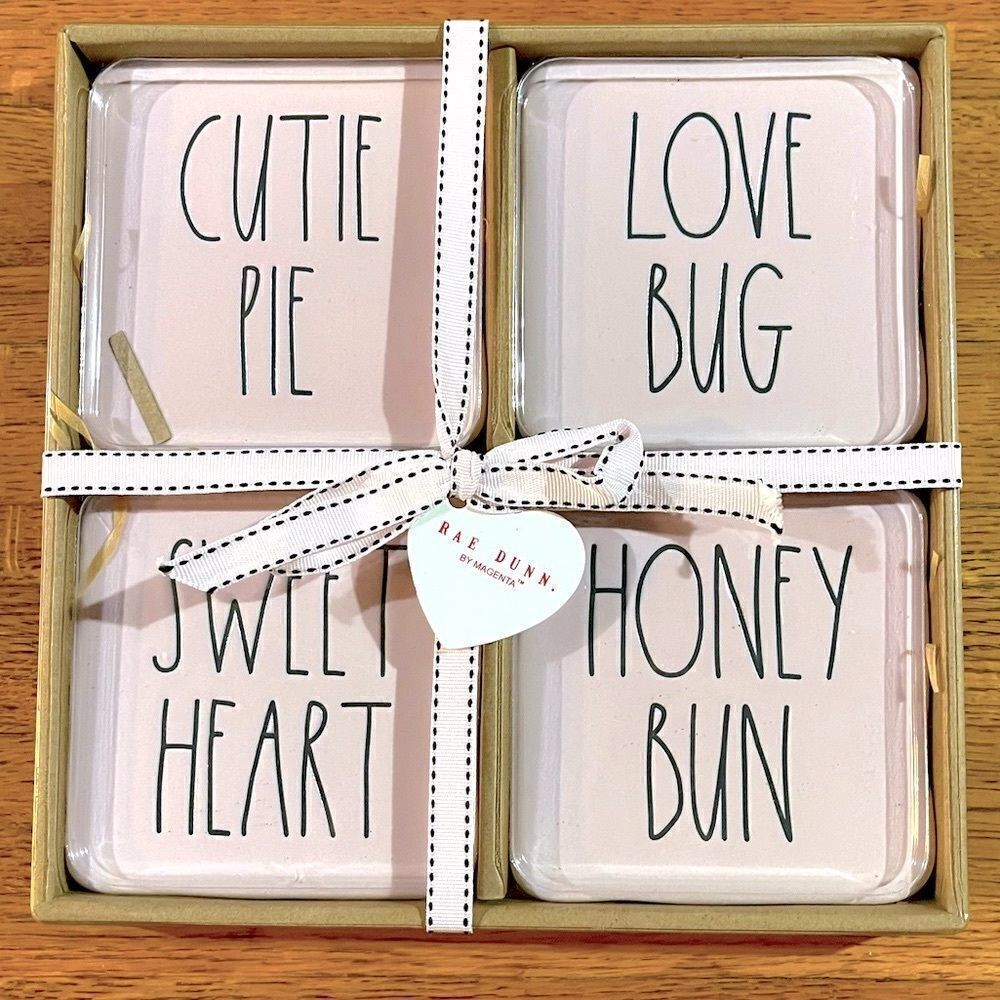 CUTIE
PIE
LOVE
BUG
SWEET
HEART
HONEY
BUN
RAE DUNN.
BY MAGENTA™